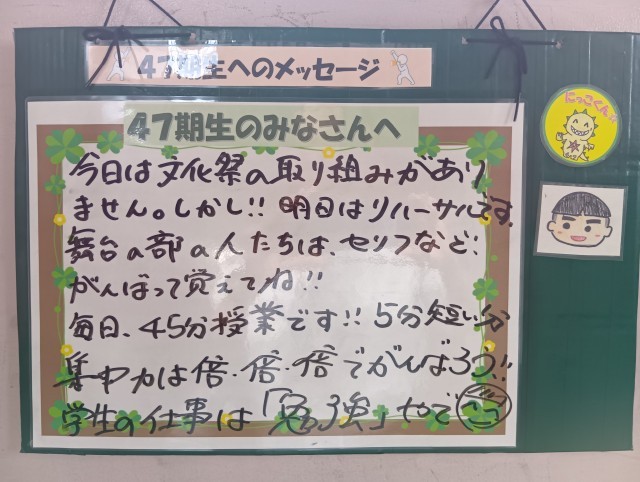 47期生へのメッセージ
47期生のみなさんへ
今日は文化祭の取り組みがあり
ません。しかし!! 明日はリハーサルです。
舞台の部の人たちは、セリフなど、
がんばって覚えてね!!
毎日、45分授業です!! 5分短い分
集中力は倍・倍・倍でがんばろう!!
学生の仕事は「勉強」やで
にっこくん